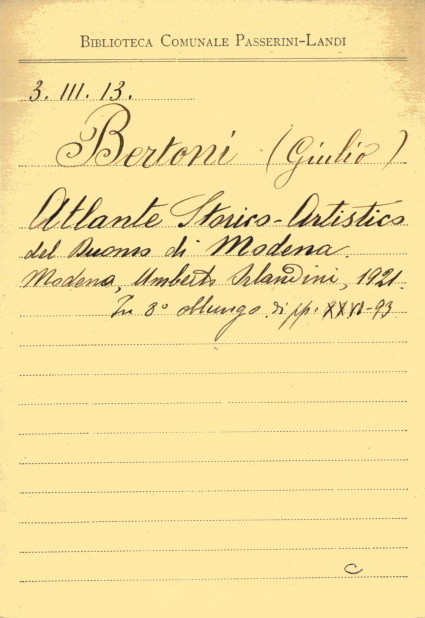 BIBLIOTECA COMUNALE PASSERINI-LANDI
3. III. 13.
Bertoni (Giulio)
Atlante Storico-Artistico
del Duomo di Modena.
Modena, Umberto Orlandini, 1921.
In 8° oblungo di pp. XXVI-93
C